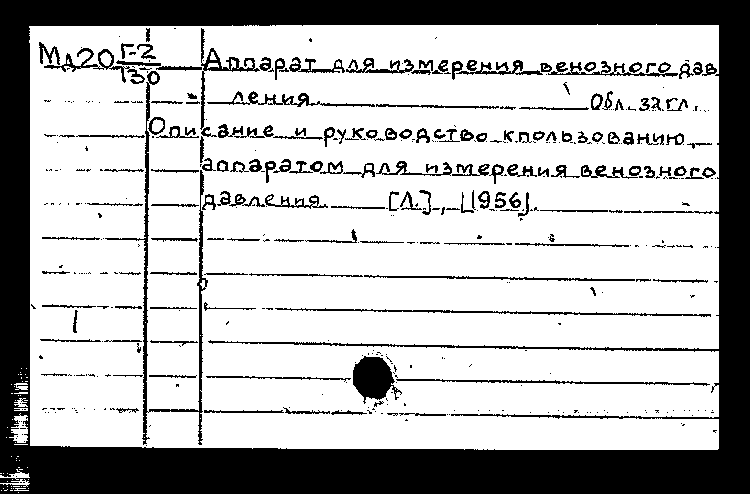 Мд20 Г-2/130 Аппарат для измерения венозного дав
ления. Обл. загл.
Описание и руководство к пользованию
аппаратом для измерения венозного
давления. [Л.], [1956].